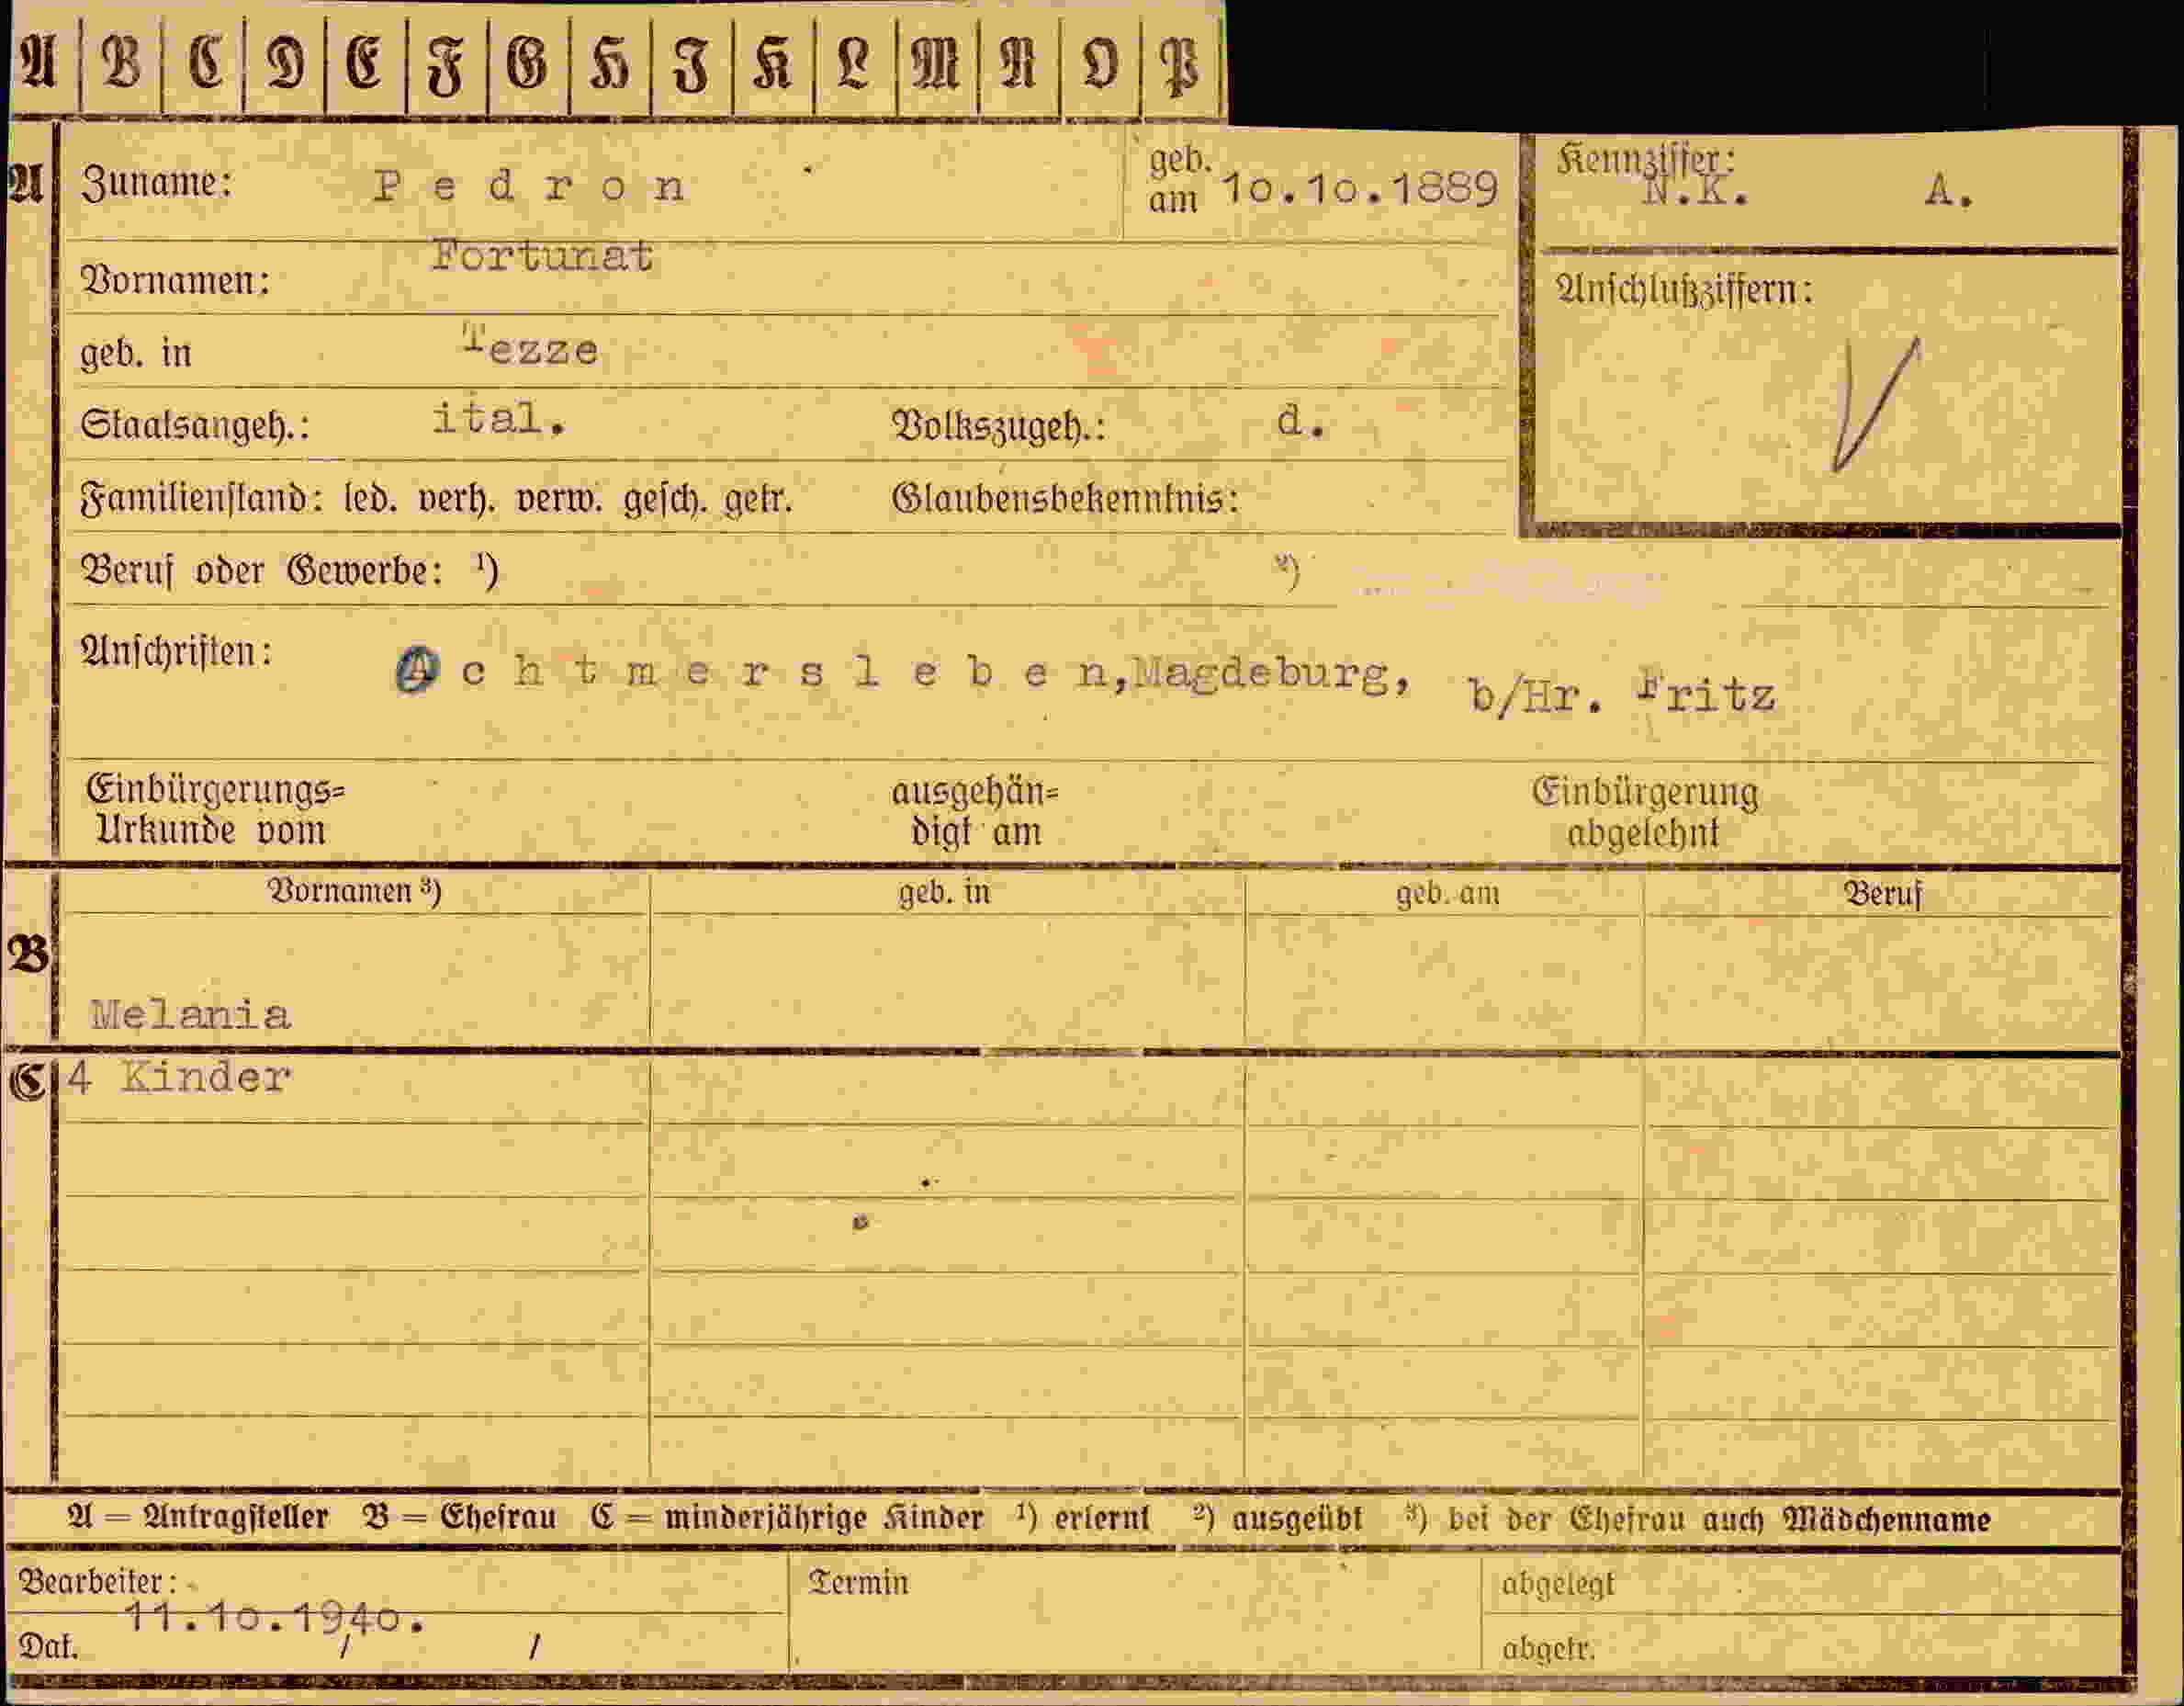 A B C D E F G H I K L M N O P
A Zuname: Pedron geb. am 10.10.1889 Kennziffer: N.K. A.
Vornamen: Fortunat
Anschlußziffern:
geb. in Tezze
V
Staatsangeh.: ital. Volkszugeh.: d.
Familienstand: led. verh. verw. gesch. getr. Glaubensbekenntnis:
Beruf oder Gewerbe: ¹) ²)
Anschriften: Achtmersleben,Magdeburg, b/Hr. Fritz
Einbürgerungs= ausgehän= Einbürgerung
Urkunde vom digt am abgelehnt
Vornamen ³) geb. in geb. am Beruf
B
Melania
C 4 Kinder
A = Antragsteller B = Ehefrau C = minderjährige Kinder ¹) erlernt ²) ausgeübt ³) bei der Ehefrau auch Mädchenname
Bearbeiter: Termin abgelegt
11.10.1940.
Dat. / / abgetr.